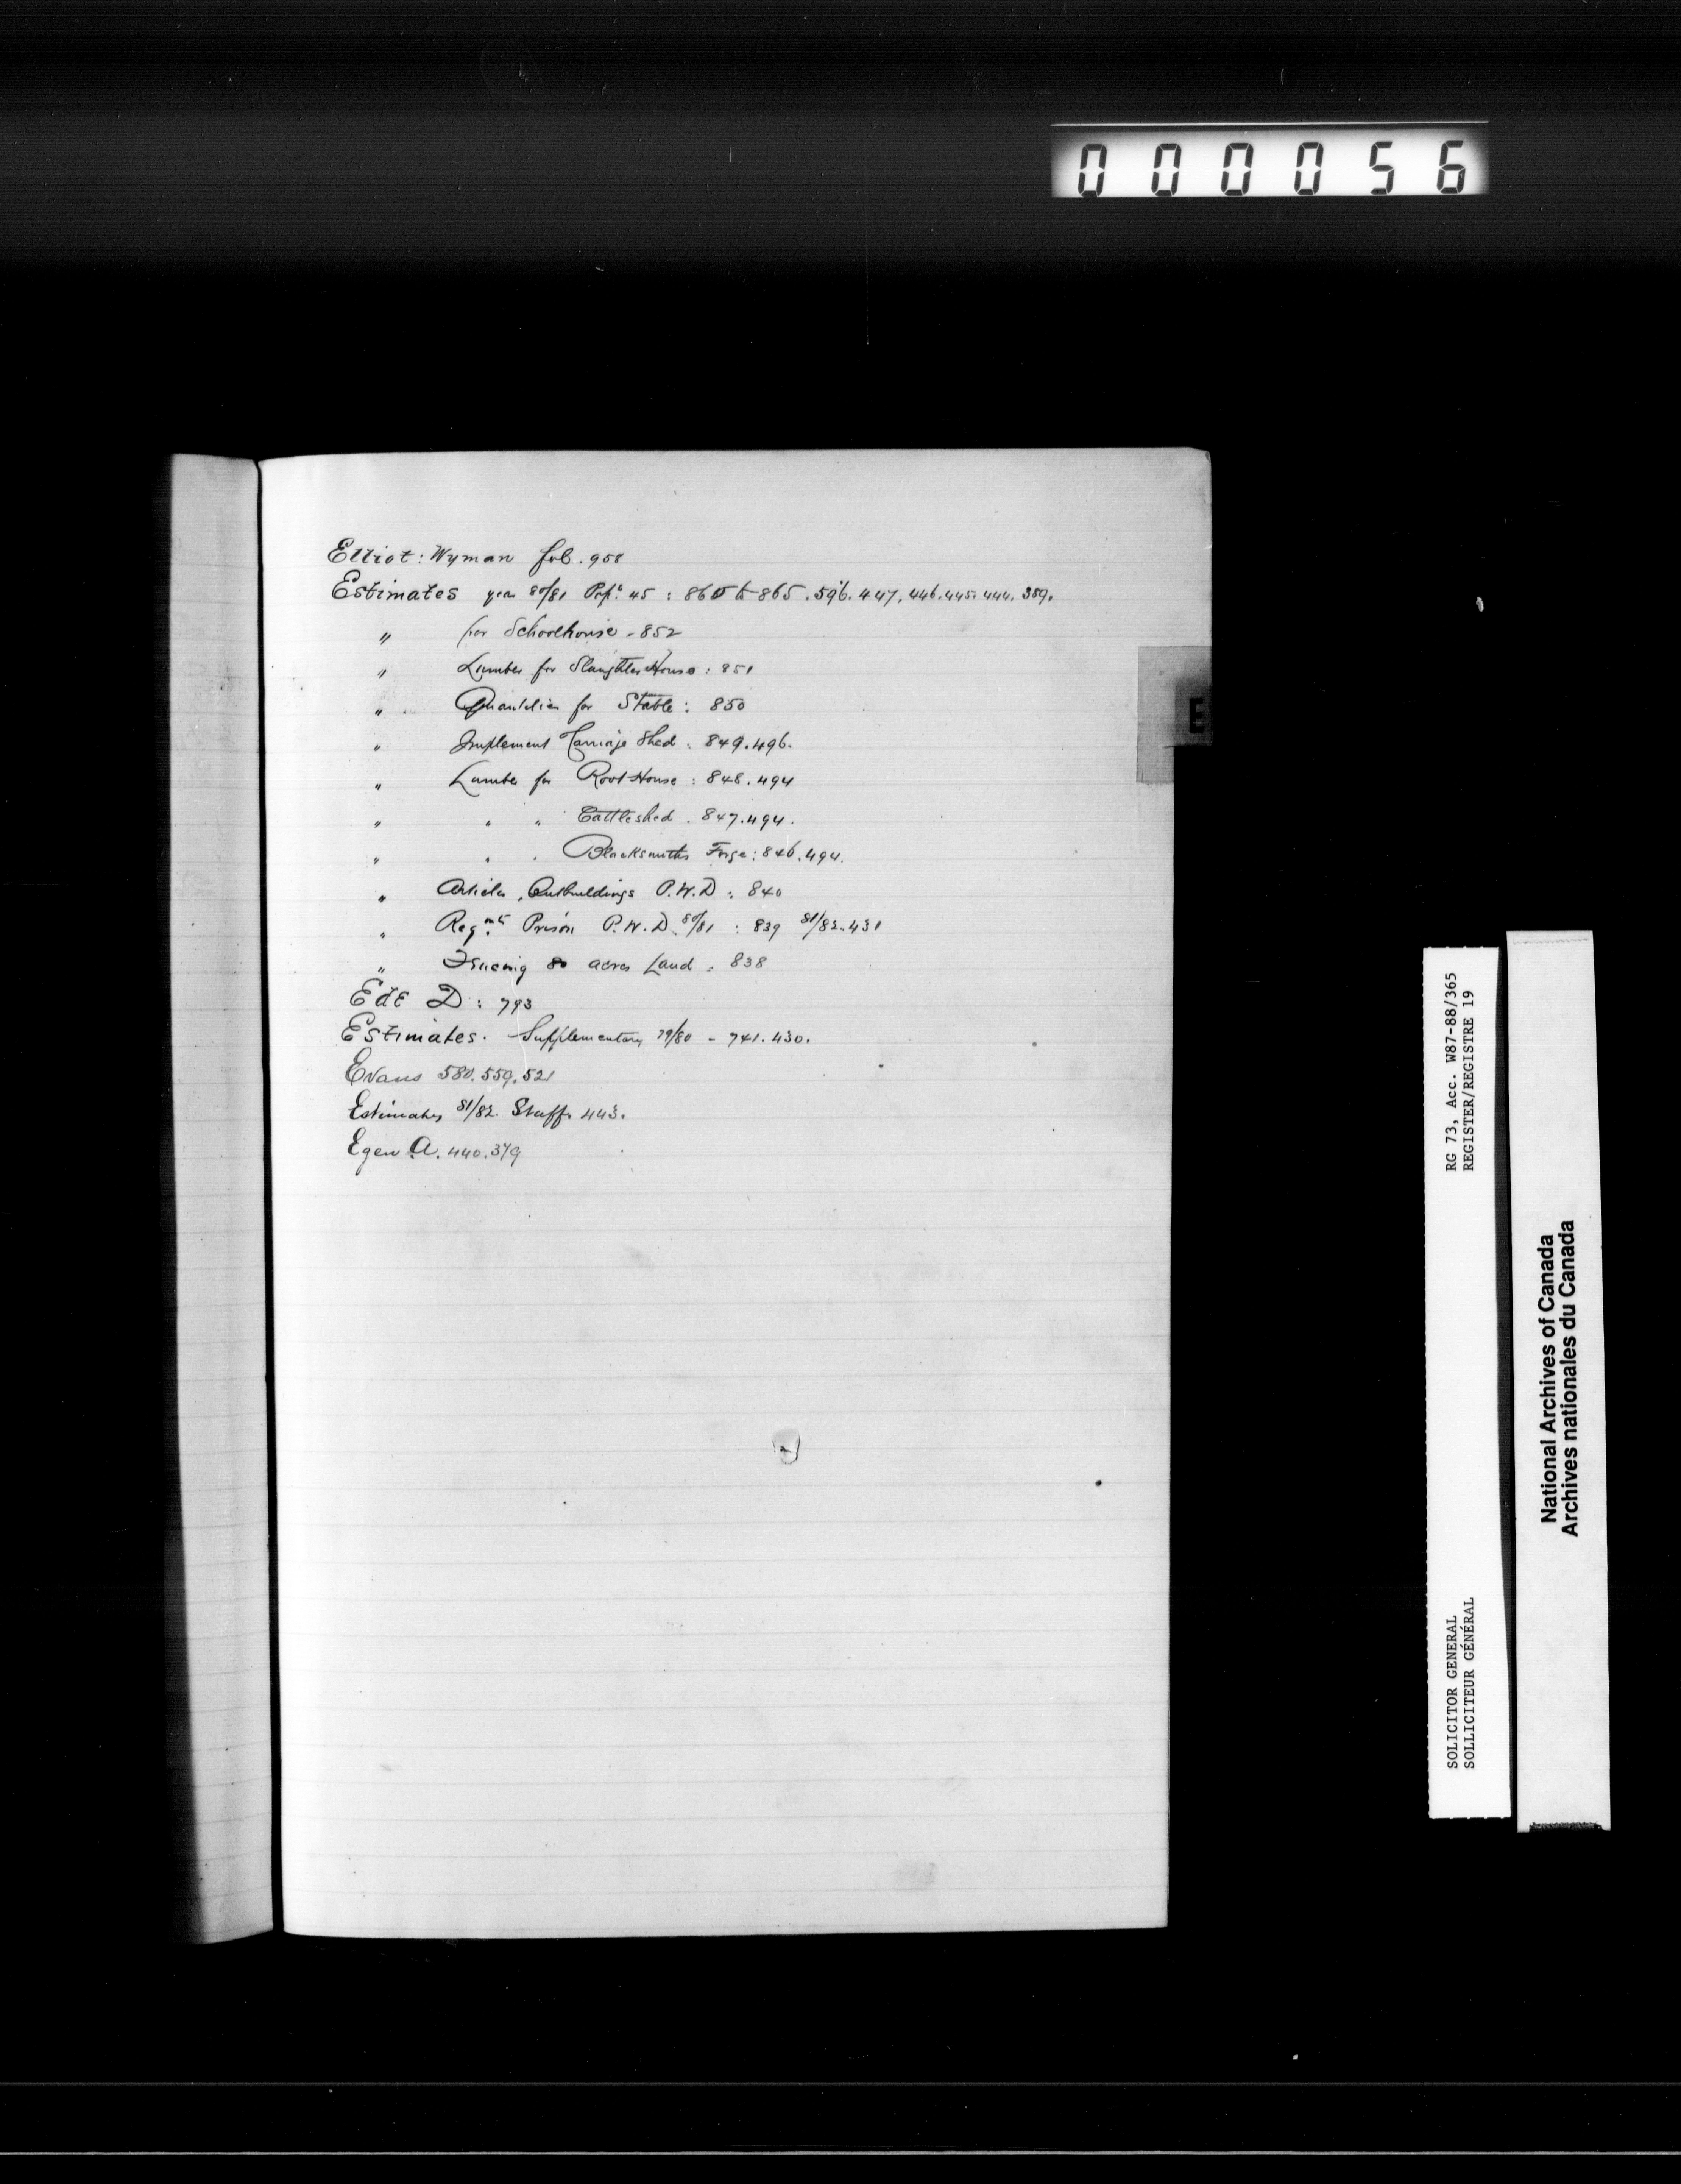 000056
Elliot: Wyman fol. 958
Estimates year 80/81 45 : 860 to 865. 596. 447. 446. 445. 444. 389.
" for Schoolhouse - 852
" Lumber for Slaughter House : 851
" for Stable : 850
" Implement Carriage Shed : 849. 496.
" Lumber for Root House : 848. 494
" " " Cattleshed . 847. 494.
" " " Blacksmiths Forge : 846. 494.
" Articles, Outbuildings P.W.D : 840
" Reqmts Prison P.W.D. 80/81 : 839 81/82. 431
" 80 acres Land . 838
Ede D : 793
Estimates. Supplementary 79/80 - 741. 430.
Evans 580. 559. 521
Estimates 81/82. Staff. 443.
Egen A. 440. 379
E
RG 73, Acc. W87-88/365
REGISTER/REGISTRE 19
SOLICITOR GENERAL
SOLLICITEUR GÉNÉRAL
National Archives of Canada
Archives nationales du Canada